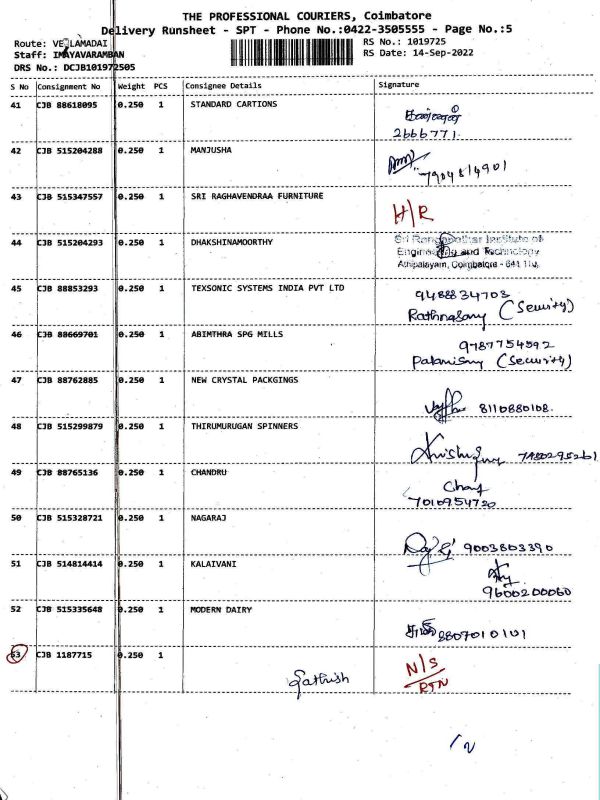 THE PROFESSIONAL COURIERS, Coimbatore
Delivery Runsheet - SPT - Phone No.:0422-3505555 - Page No.:5
Route: VELLAMADAI
RS No.: 1019725
Staff: IMAYAVARAMBAN
RS Date: 14-Sep-2022
DRS No.: DCJB101972505
S No Consignment No Weight PCS Consignee Details Signature
41 CJB 88618095 0.250 1 STANDARD CARTIONS
2666771.
42 CJB 515204288 0.250 1 MANJUSHA
43 CJB 515347557 0.250 1 SRI RAGHAVENDRAA FURNITURE
H/R
44 CJB 515204293 0.250 1 DHAKSHINAMOORTHY
Institute of
and Technology
Athipalayam, Coimbatore - 641 110.
45 CJB 88853293 0.250 1 TEXSONIC SYSTEMS INDIA PVT LTD
9488834703
(Security)
46 CJB 88669701 0.250 1 ABIMTHRA SPG MILLS
9787754592
Palanisamy (Security)
47 CJB 88762885 0.250 1 NEW CRYSTAL PACKGINGS
8110880108.
48 CJB 515299879 0.250 1 THIRUMURUGAN SPINNERS
49 CJB 88765136 0.250 1 CHANDRU
7010954720
50 CJB 515328721 0.250 1 NAGARAJ
9003803390
51 CJB 514814414 0.250 1 KALAIVANI
9600200060
52 CJB 515335648 0.250 1 MODERN DAIRY
8807010101
53 CJB 1187715 0.250 1
Sathish
N/S
RTN